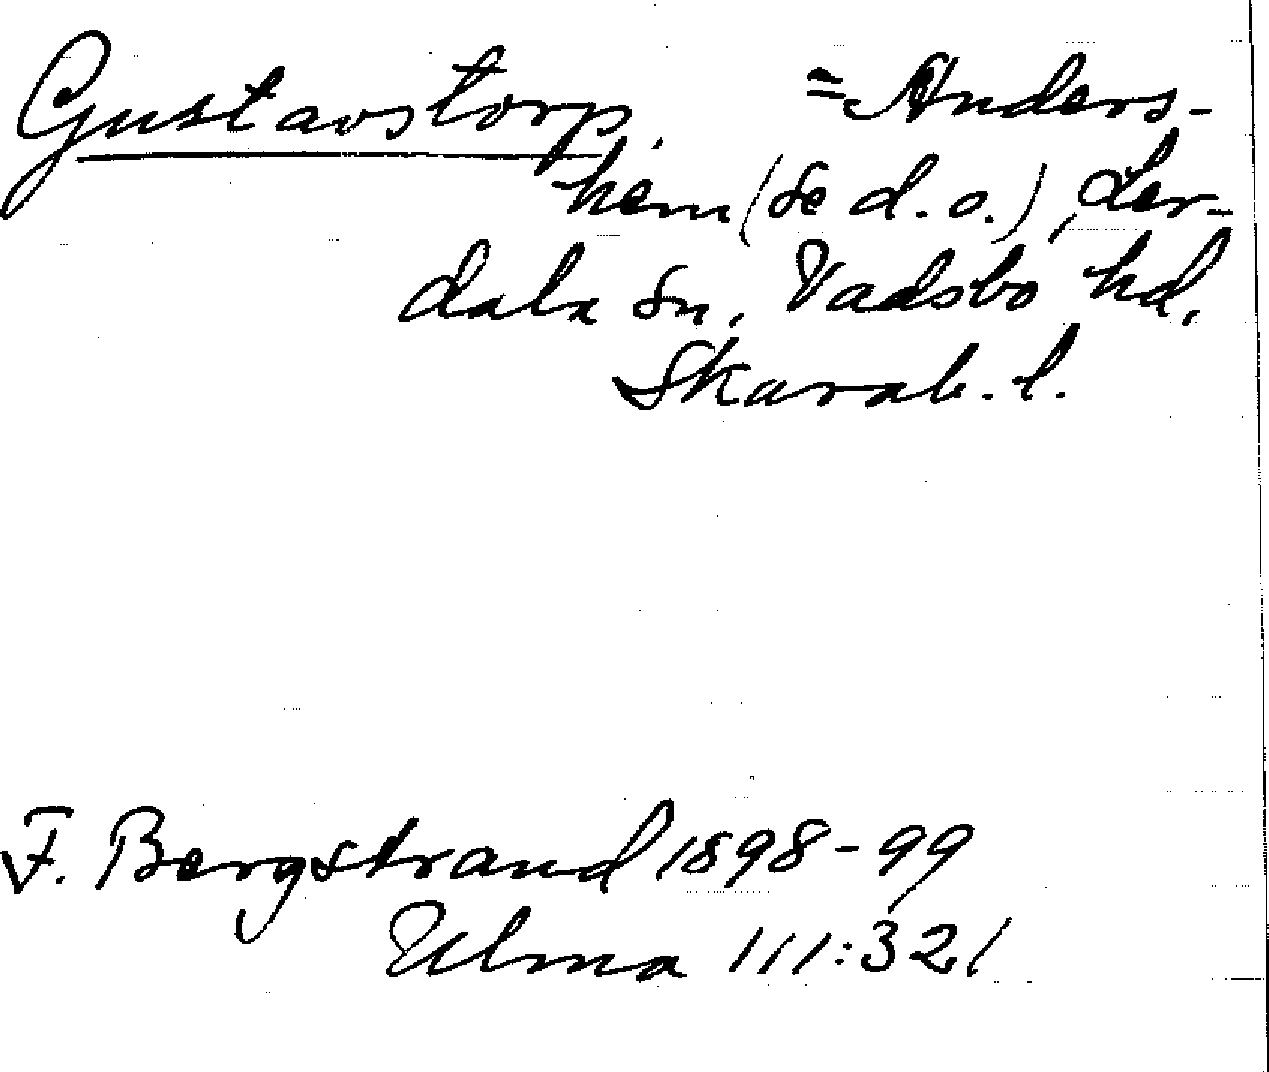 Gustavstorp. = Anders-
hem (se d.o.), Ler-
dala sn, Vadsbo hd,
Skarab. l.
F. Bergstrand 1898-99
Ulma 111:321